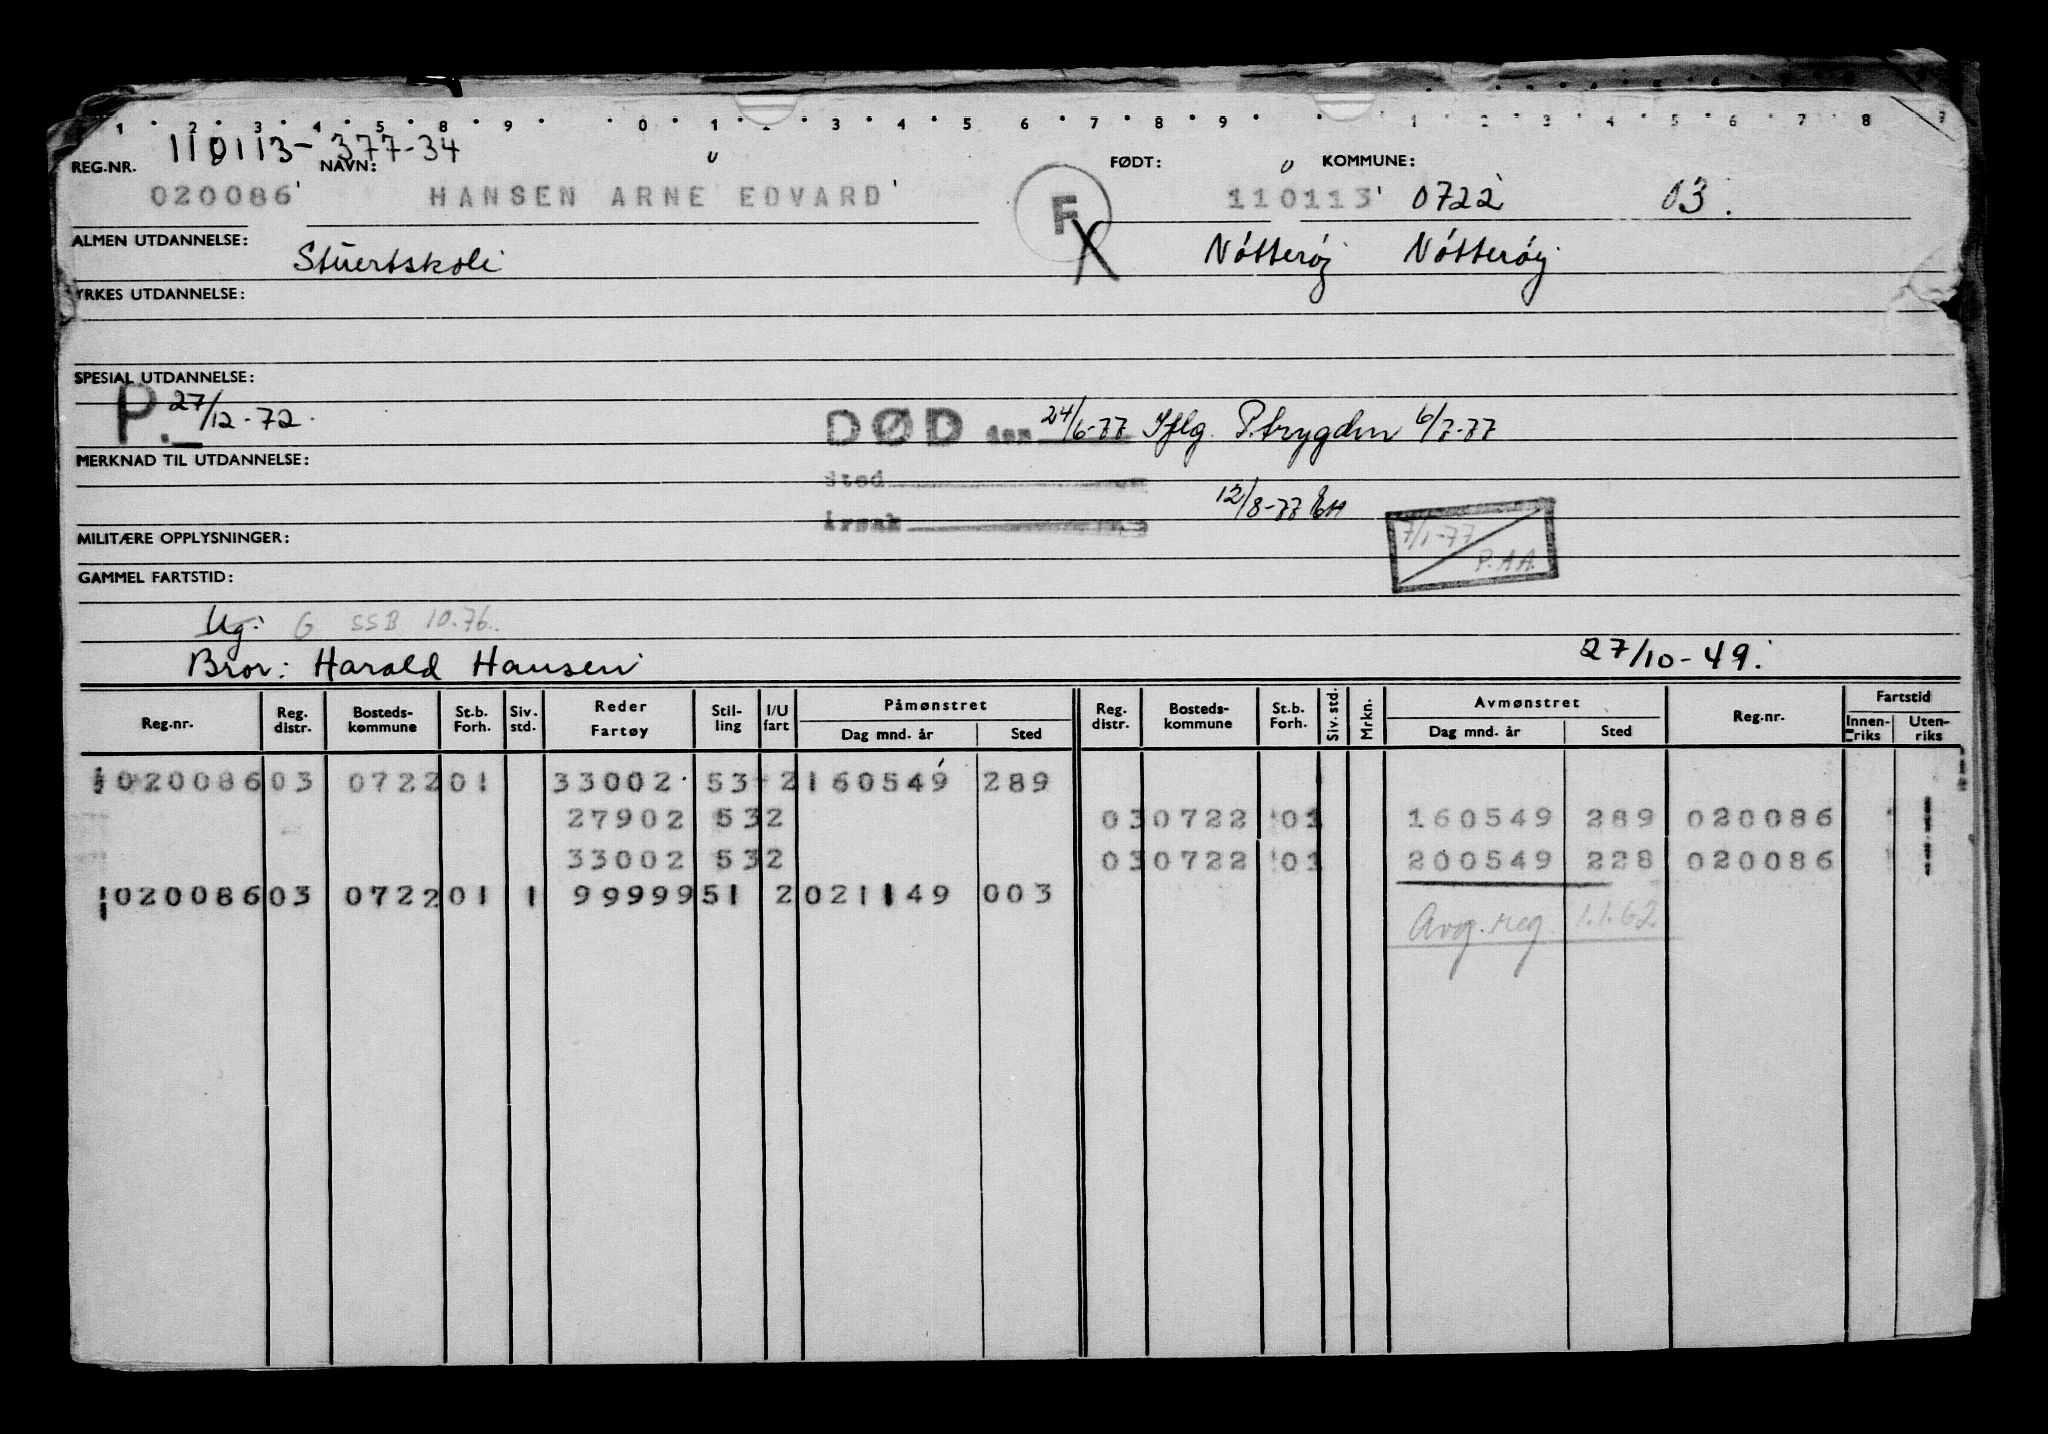 1 2 3 4 5 8 9 0 1 2 3 4 5 6 7 8 9 1 2 3 4 5 6 7 8
110113-377-34
REG.NR. NAVN: FØDT: KOMMUNE:
020086 HANSEN ARNE EDVARD F 110113 0722 03.
ALMEN UTDANNELSE: Stuertskole X Nötteröy Nötteröy
YRKES UTDANNELSE:
SPESIAL UTDANNELSE:
P. 27/12-72.
DØD den 24/6-77 Iflg. P.trygden 6/7-77
MERKNAD TIL UTDANNELSE:
Sted
12/8-77
Årsak
7/1-77 P.AA.
MILITÆRE OPPLYSNINGER:
GAMMEL FARTSTID:
Ug: G SSB 10.76.
Bror: Harald Hansen 27/10-49.
Reg.nr. Reg. distr. Bosteds-kommune St.b. Forh. Siv. std. Reder Fartøy Stil-ling I/U fart Påmønstret Dag mnd. år Sted Reg. distr. Bosteds-kommune St.b. Forh. Siv. std. Mrkn. Avmønstret Dag mnd. år Sted Reg.nr. Fartstid Innen-riks Uten-riks
020086 03 0722 01 33002 53 2 160549 289
27902 53 2 03 0722 01 160549 289 020086
33002 53 2 03 0722 01 200549 228 020086
020086 03 0722 01 1 99999 51 2 021149 003
Avg. reg. 1.1.62